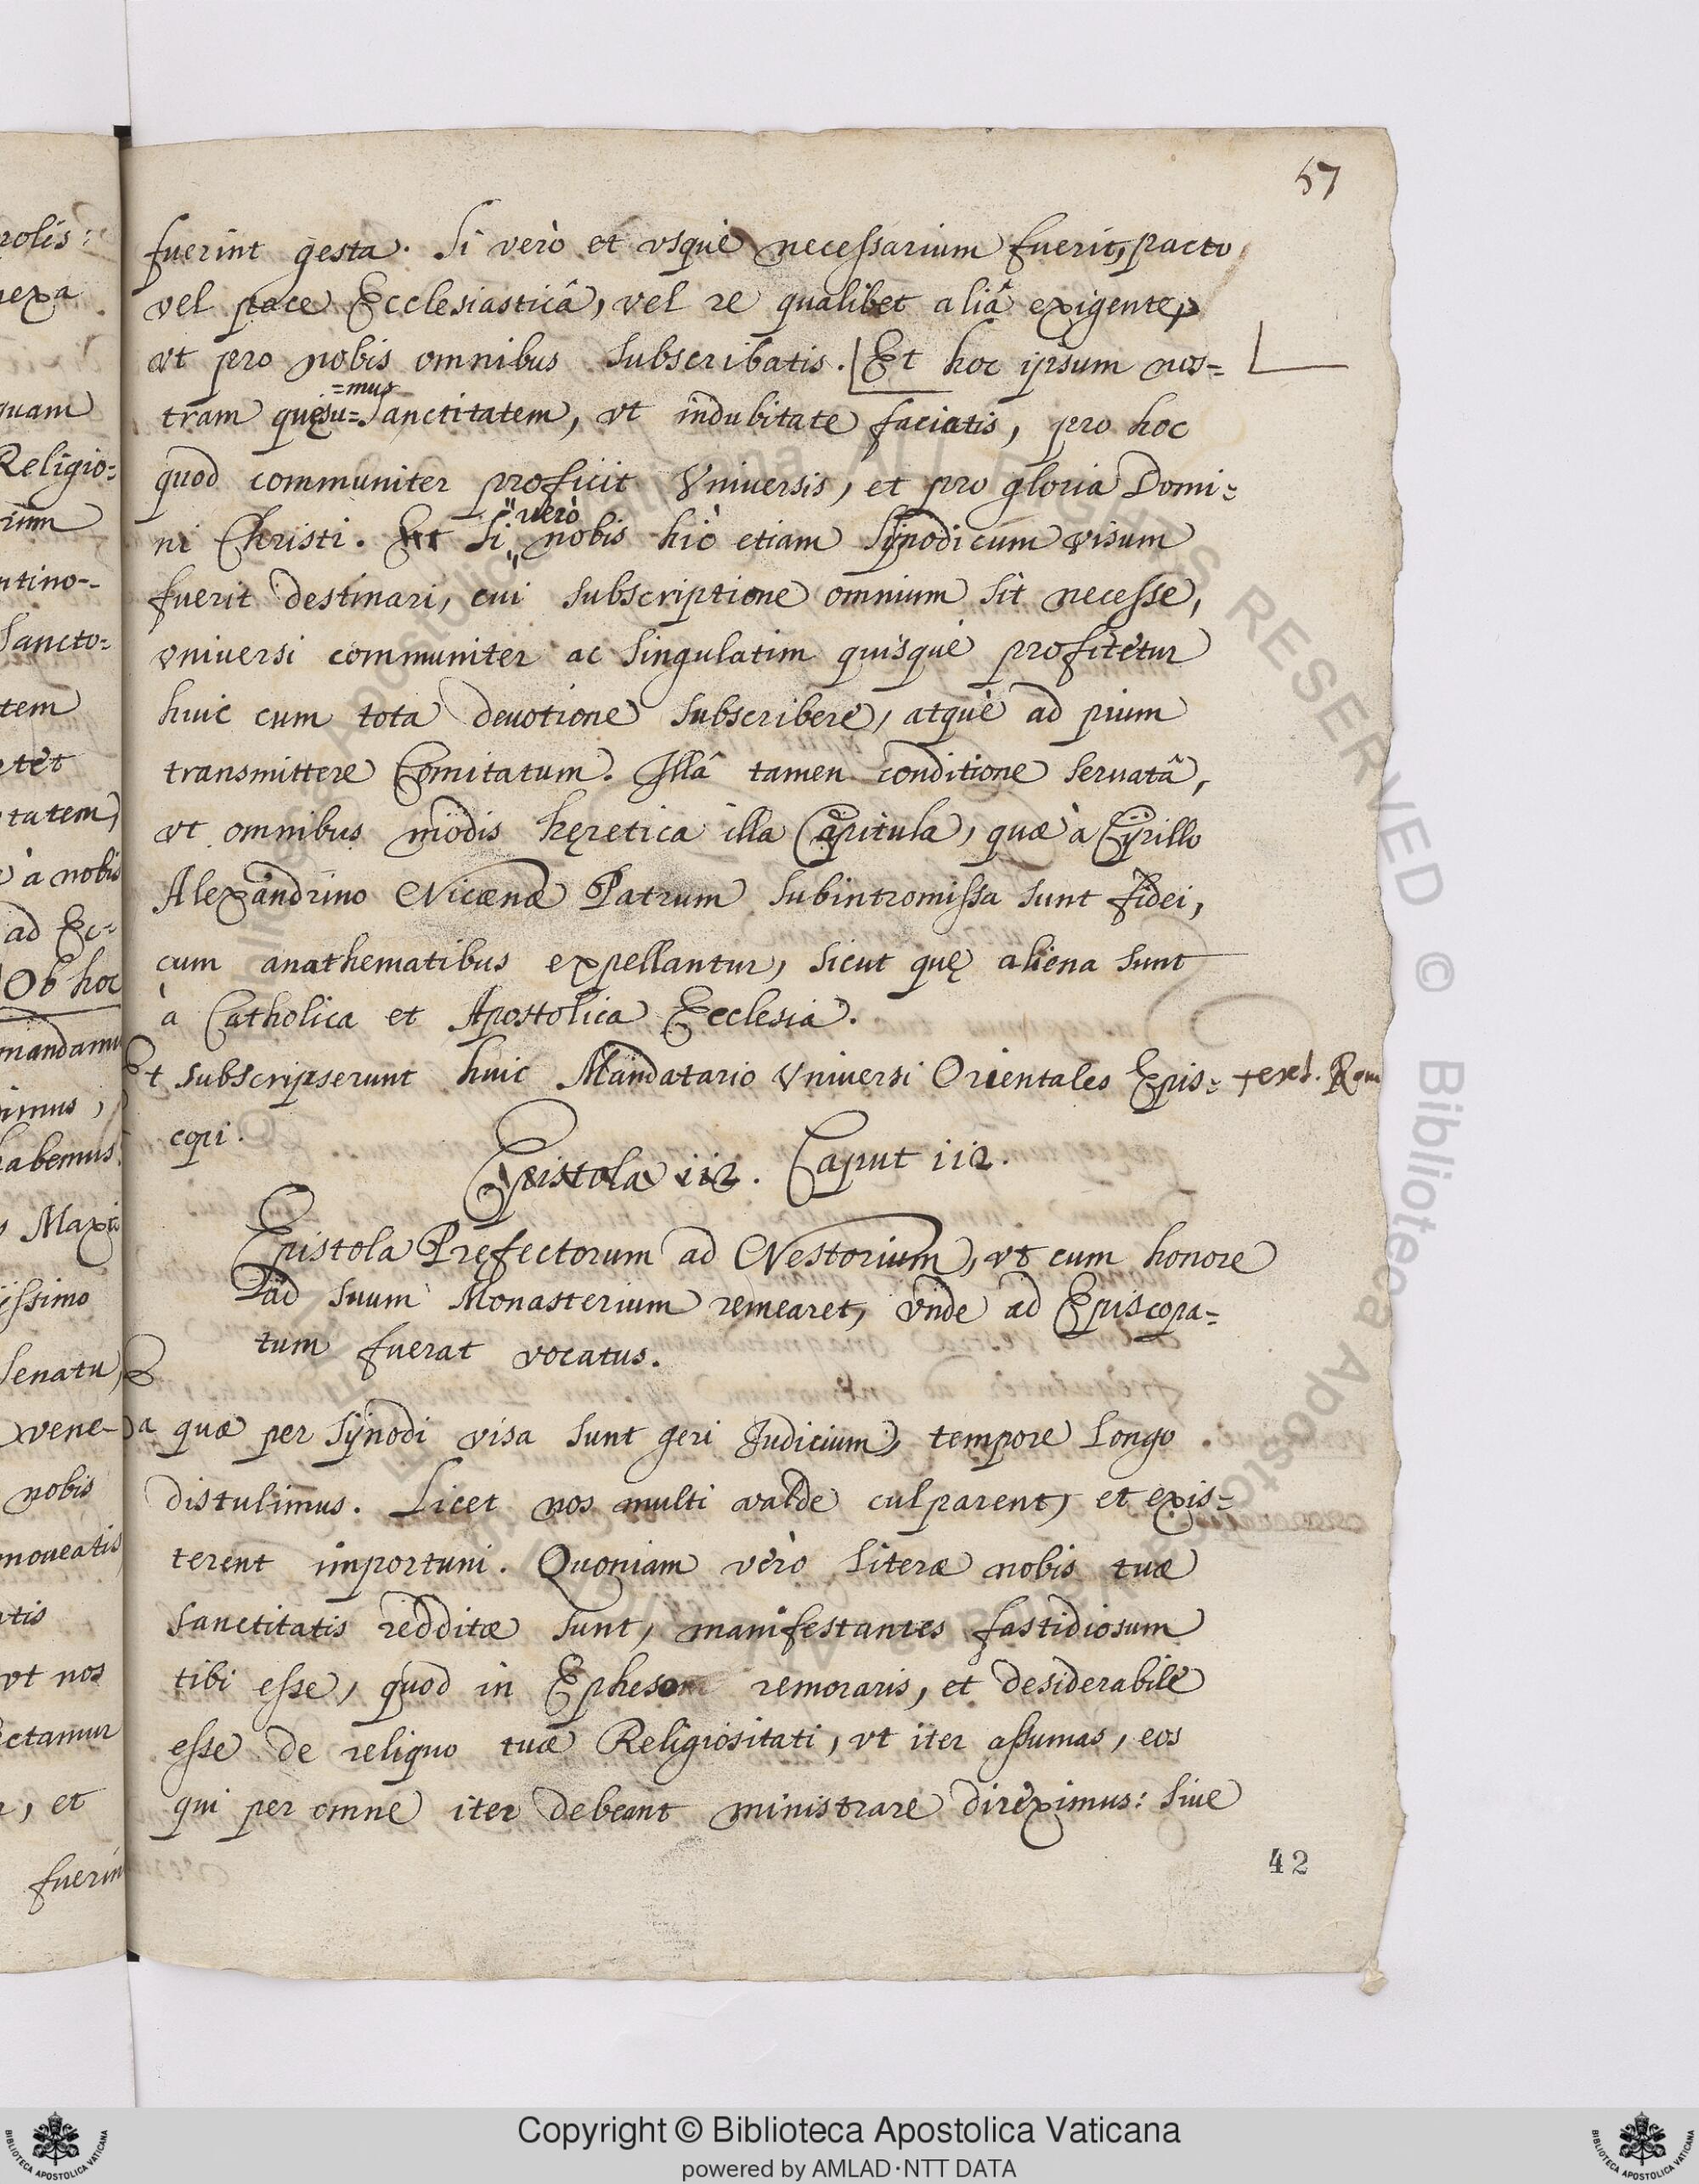 57
fuerint gesta. Si verò et vsque necessarium fuerit, pacto
vel pace Ecclesiasticâ, vel re qualibet aliâ exigente,
vt pro nobis omnibus subscribatis. Et hoc ipsum nos=
=mus
tram quęsu= Sanctitatem, vt indubitate faciatis, pro hoc
quod communiter proficit Vniversis, et pro gloria Domi=
verò
ni Christi. Et Si nobis hic etiam Synodicum visum
fuerit destinari, cui subscriptione omnium sit necesse,
vniuersi communiter ac singulatim quisque profitetur
huic cum tota deuotione subscribere, atque ad pium
transmittere Comitatum. Illâ tamen conditione seruatâ,
vt omnibus modis hęretica illa Capitula, quæ à Cyrillo
Alexandrino Nicænæ Patrum subintromissa sunt fidei,
cum anathematibus expellantur, sicut quę aliena sunt
à Catholica et Apostolica Ecclesia.
Et subscripserunt huic Mandatario Vniuersi Orientales Epis=
copi.
Epistola iiz. Caput iiz.
Epistola Pręfectorum ad Nestorium, vt cum honore
ad suum Monasterium remearet, vnde ad Episcopa=
tum fuerat vocatus.
Ea quæ per Synodi visa sunt geri Judicium, tempore Longo
distulimus. Licet nos multi valde culparent, et exis=
terent importuni. Quoniam verò literæ nobis tuæ
sanctitatis redditæ sunt, manifestantes fastidiosum
tibi esse, quod in Epheso remoraris, et desiderabile
esse de reliquo tuæ Religiositati, vt iter assumas, eos
qui per omne iter debeant ministrare direximus: siue
42
rolis:
nexa
quam
Religio=
rium
ntino=
Sancto=
tem
tet
tatem,
à nobis
ad Ec=
Ob hoc
mandamu
simus,
habemus
Maxi
issimo
Senatu,
vene=
nobis
moueatis
atis
vt nos
ectamur
, et
fuerin
© Biblioteca Apostolica Vaticana ALL RIGHTS RESERVED © Biblioteca Apostolica
Copyright © Biblioteca Apostolica Vaticana
powered by AMLAD·NTT DATA
BIBLIOTECA APOSTOLICA VATICANA
BIBLIOTECA APOSTOLICA VATICANA